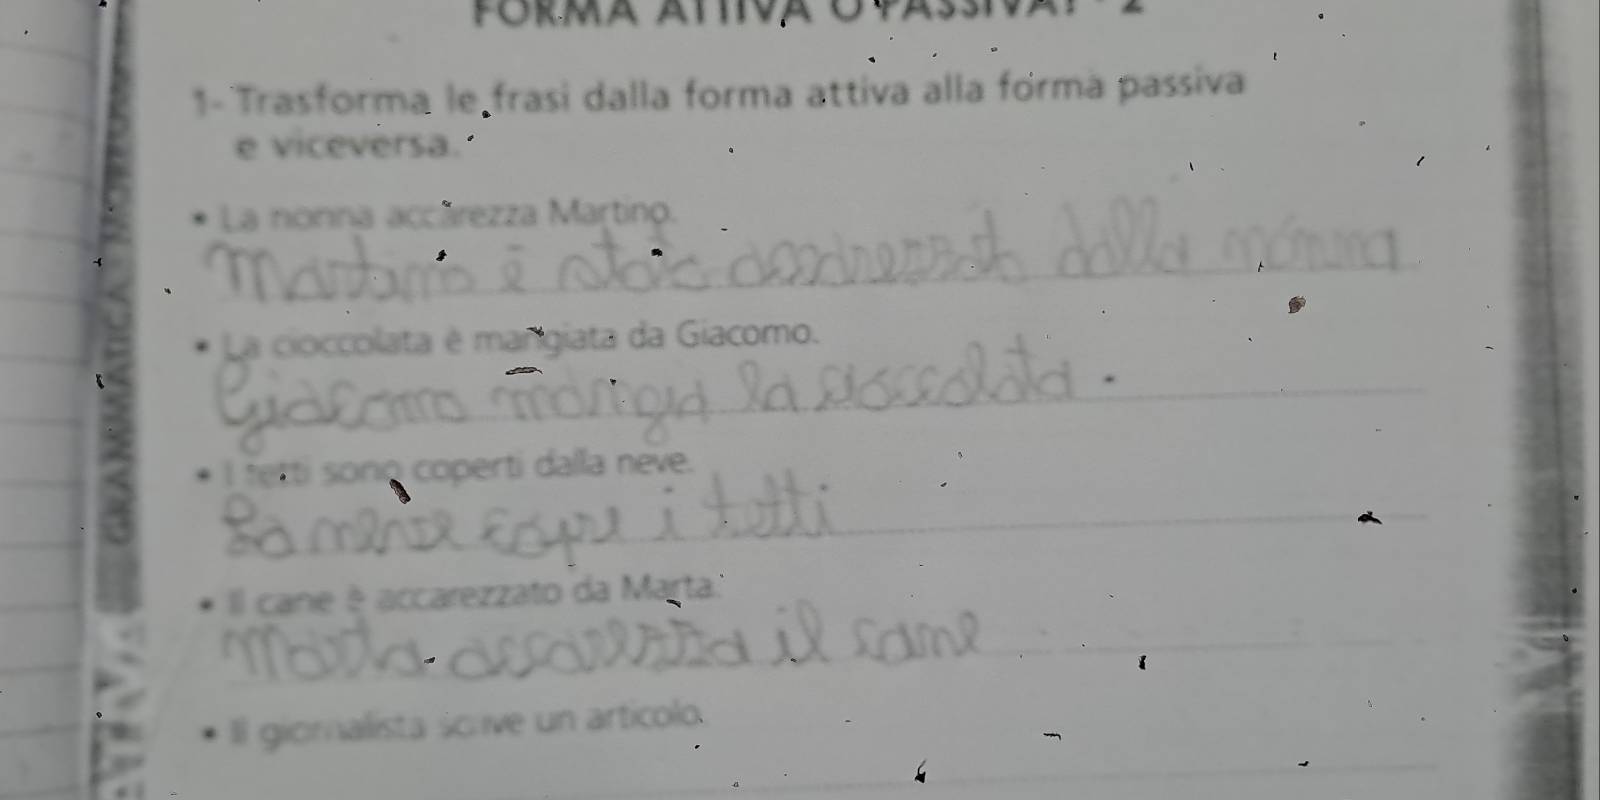 FORMA ATTIVA O PASSIVA? - 2
1- Trasforma le frasi dalla forma attiva alla forma passiva
e viceversa.
• La nonna accarezza Martino.
Martino è stato accarezzato dalla nonna
• La cioccolata è mangiata da Giacomo.
Giacomo mangia la cioccolata.
• I tetti sono coperti dalla neve.
La neve copre i tetti
• Il cane è accarezzato da Marta.
Marta accarezza il cane
• Il giornalista scrive un articolo.